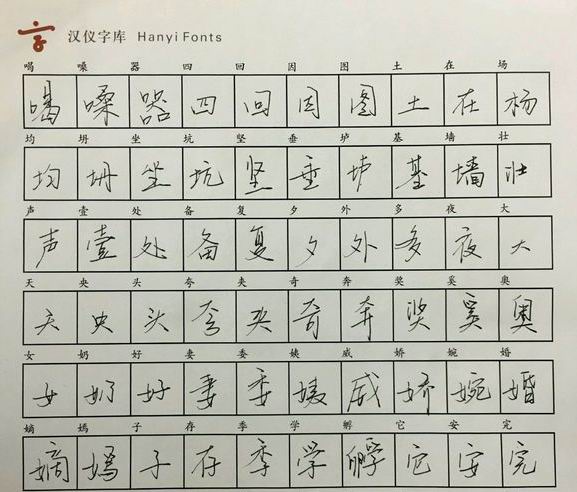 汉仪字库 Hanyi Fonts
喝 嗓 器 四 回 因 图 土 在 场
喝 嗓 器 四 回 因 图 土 在 场
均 坍 坐 坑 坚 垂 垆 基 墙 壮
均 坍 坐 坑 坚 垂 垆 基 墙 壮
声 壹 处 备 复 夕 外 多 夜 大
声 壹 处 备 复 夕 外 多 夜 大
天 央 头 夸 夹 奇 奔 奖 奚 奥
天 央 头 夸 夹 奇 奔 奖 奚 奥
女 奶 好 妻 委 姨 威 娇 婉 婚
女 奶 好 妻 委 姨 威 娇 婉 婚
嫡 嫣 子 存 季 学 孵 它 安 完
嫡 嫣 子 存 季 学 孵 它 安 完